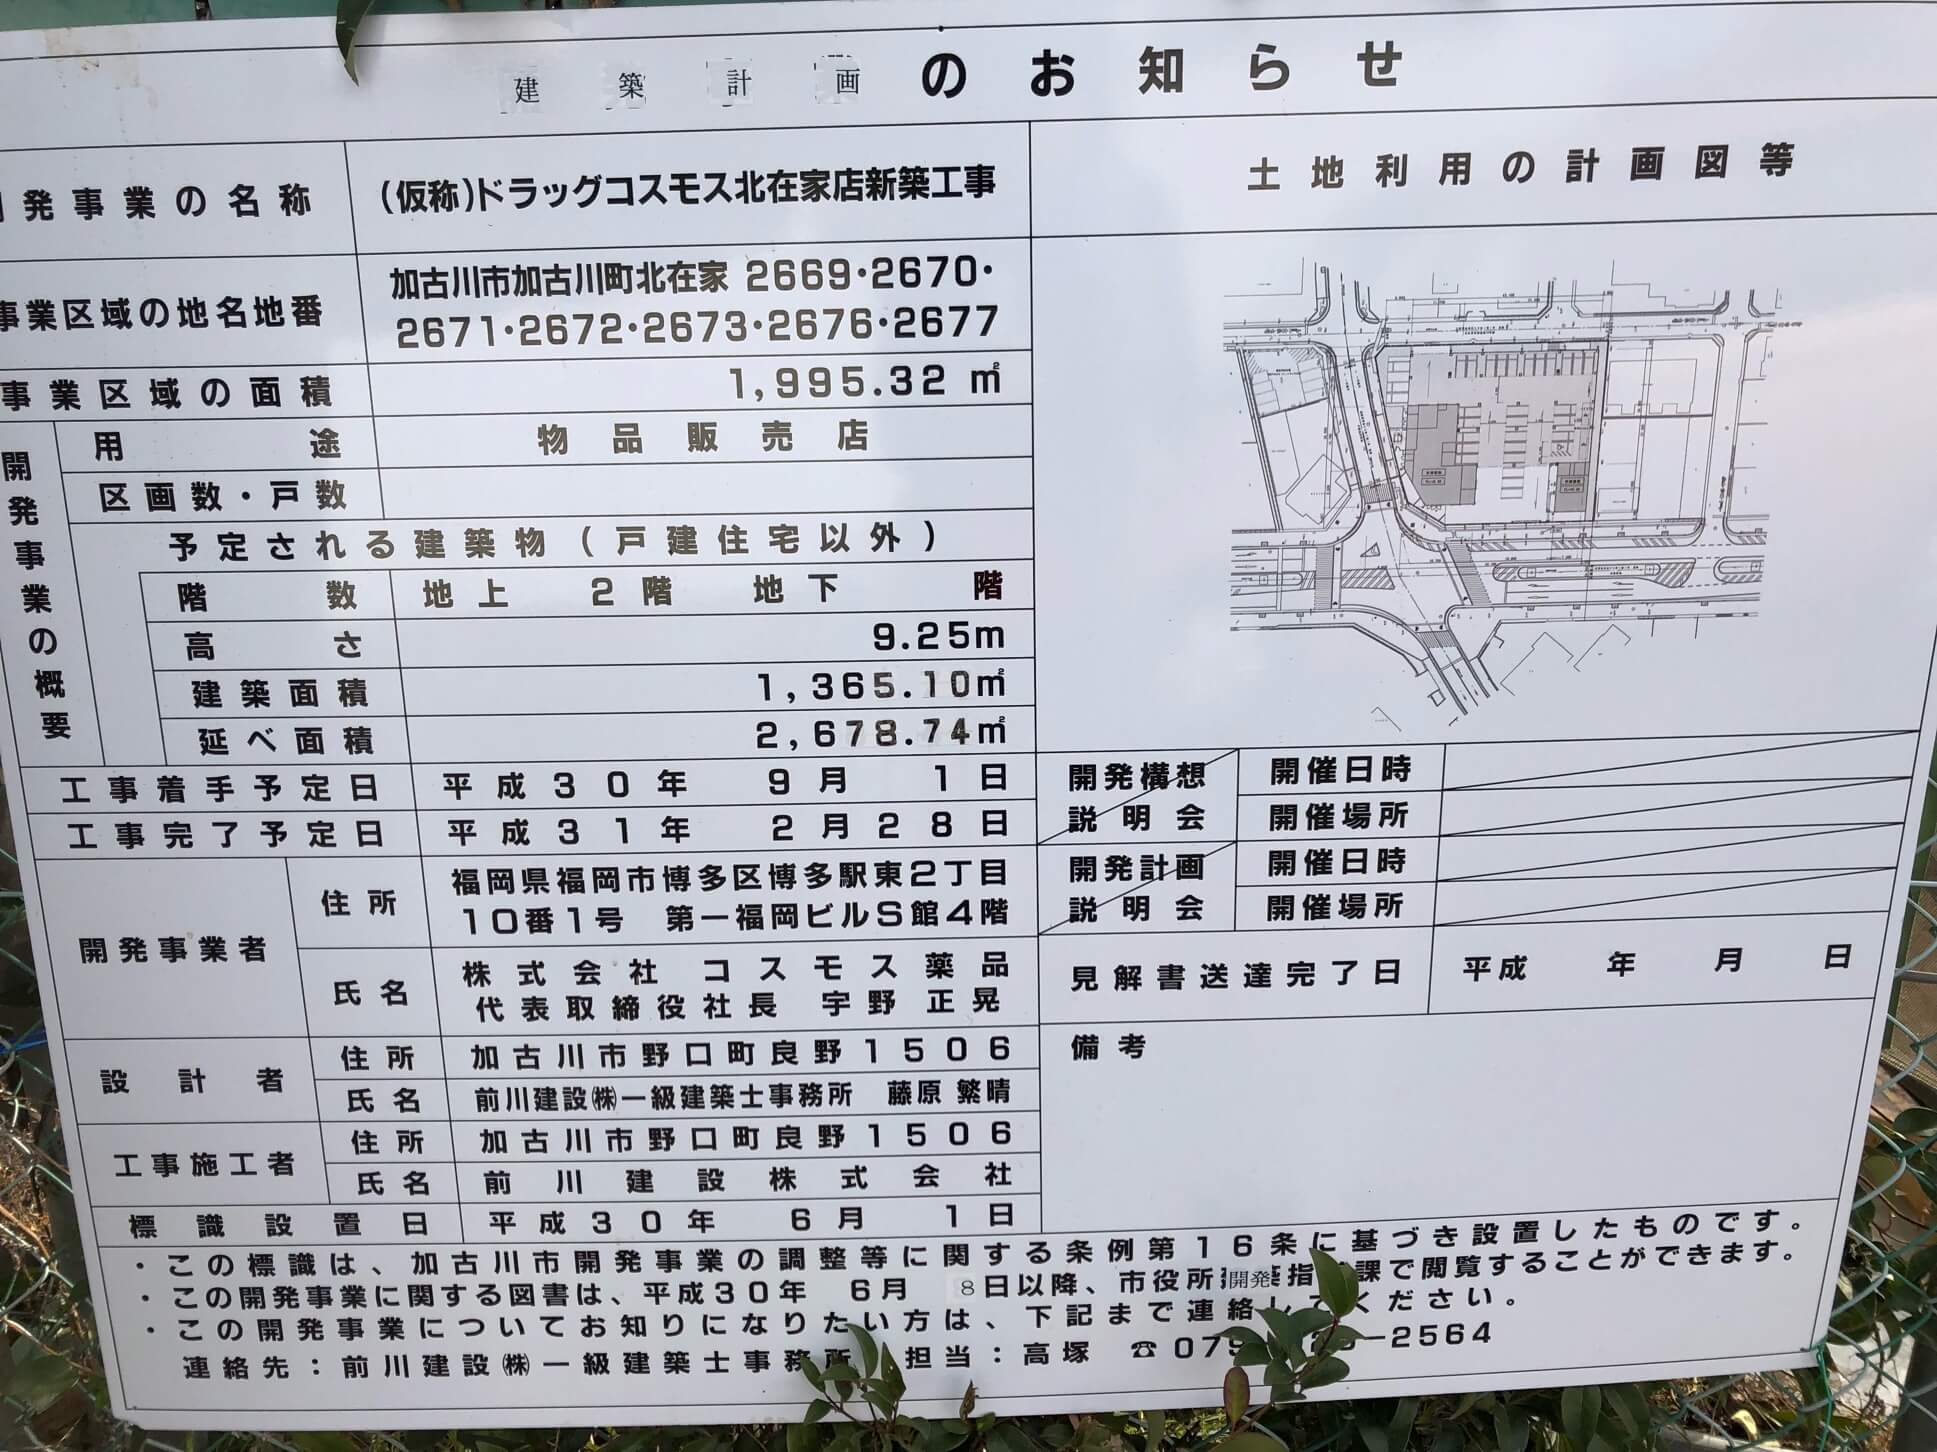 建築計画のお知らせ
発事業の名称
(仮称)ドラッグコスモス北在家店新築工事
事業区域の地名地番
加古川市加古川町北在家 2669・2670・
2671・2672・2673・2676・2677
事業区域の面積
1,995.32 ㎡
開発事業の概要
用途
物品販売店
区画数・戸数
予定される建築物(戸建住宅以外)
階数
地上 2階 地下 階
高さ
9.25m
建築面積
1,365.10㎡
延べ面積
2,678.74㎡
工事着手予定日
平成30年 9月 1日
工事完了予定日
平成31年 2月28日
開発事業者
住所
福岡県福岡市博多区博多駅東2丁目
10番1号 第一福岡ビルS館4階
氏名
株式会社 コスモス薬品
代表取締役社長 宇野 正晃
設計者
住所
加古川市野口町良野1506
氏名
前川建設㈱一級建築士事務所 藤原 繁晴
工事施工者
住所
加古川市野口町良野1506
氏名
前川建設株式会社
標識設置日
平成30年 6月 1日
土地利用の計画図等
開発構想
説明会
開催日時
開催場所
開発計画
説明会
開催日時
開催場所
見解書送達完了日
平成 年 月 日
備考
・この標識は、加古川市開発事業の調整等に関する条例第16条に基づき設置したものです。
・この開発事業に関する図書は、平成30年 6月 8日以降、市役所開発指課で閲覧することができます。
・この開発事業についてお知りになりたい方は、下記まで連絡してください。
連絡先:前川建設㈱一級建築士事務所 担当:高塚 ☎079 2564